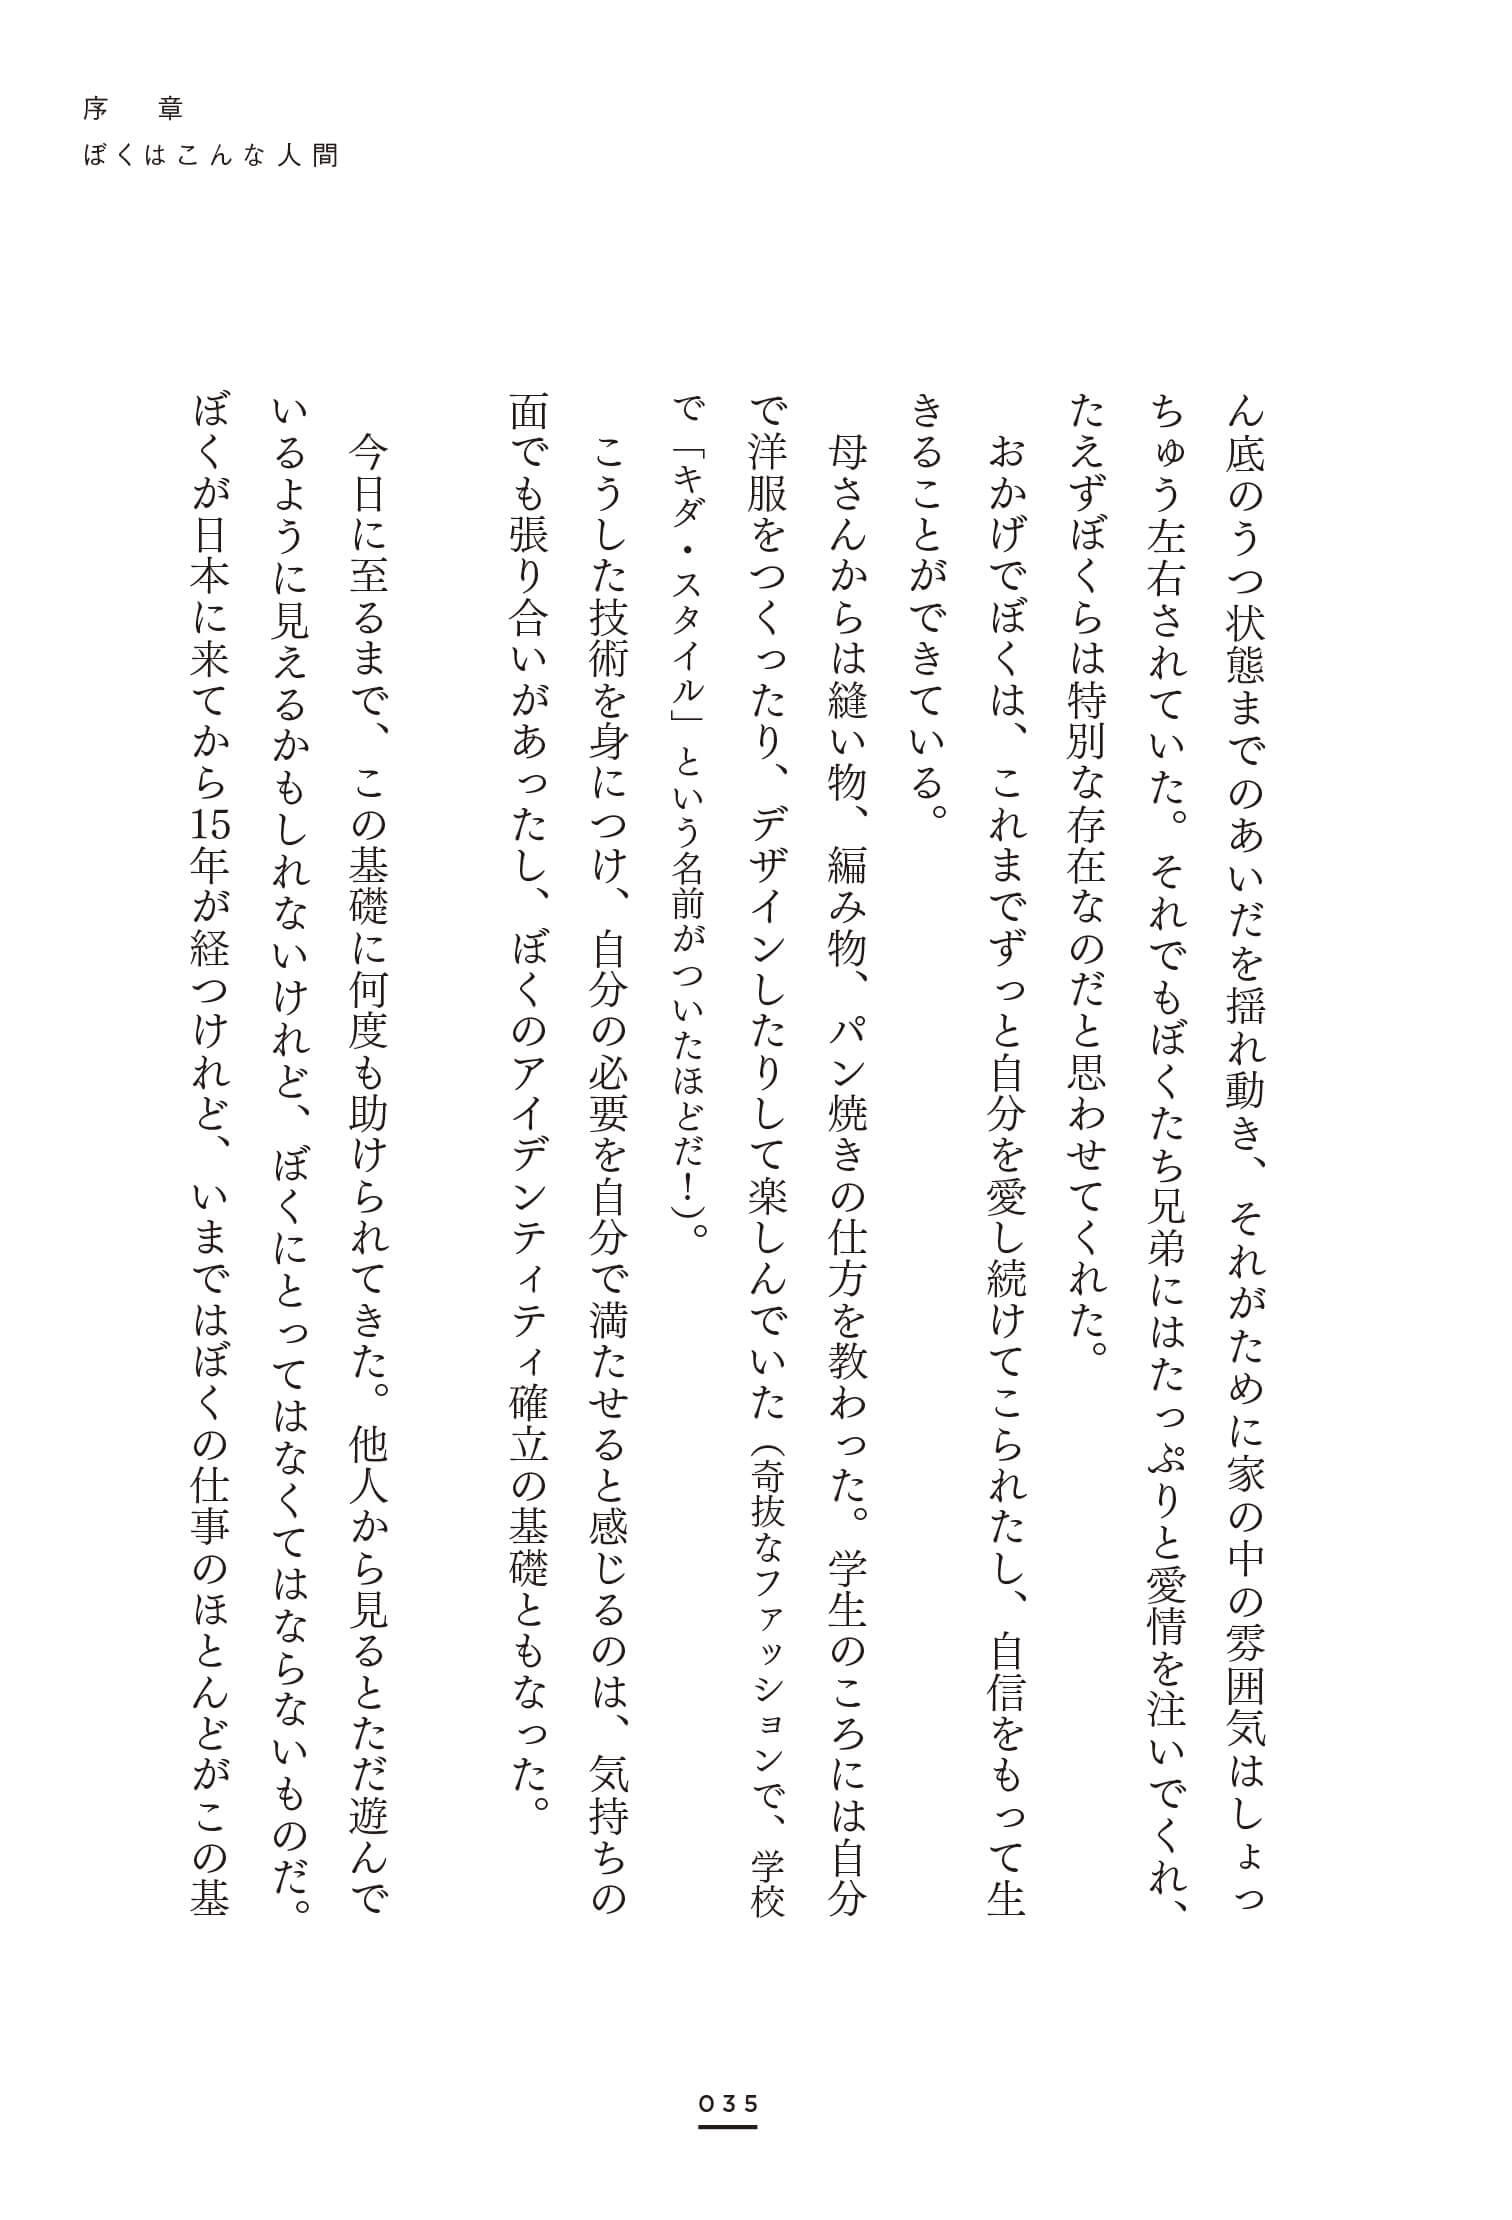 序　章
ぼくはこんな人間
ん底のうつ状態までのあいだを揺れ動き、それがために家の中の雰囲気はしょっ
ちゅう左右されていた。それでもぼくたち兄弟にはたっぷりと愛情を注いでくれ、
たえずぼくらは特別な存在なのだと思わせてくれた。
おかげでぼくは、これまでずっと自分を愛し続けてこられたし、自信をもって生
きることができている。
母さんからは縫い物、編み物、パン焼きの仕方を教わった。学生のころには自分
で洋服をつくったり、デザインしたりして楽しんでいた（奇抜なファッションで、学校
で「キダ・スタイル」という名前がついたほどだ！）。
こうした技術を身につけ、自分の必要を自分で満たせると感じるのは、気持ちの
面でも張り合いがあったし、ぼくのアイデンティティ確立の基礎ともなった。
今日に至るまで、この基礎に何度も助けられてきた。他人から見るとただ遊んで
いるように見えるかもしれないけれど、ぼくにとってはなくてはならないものだ。
ぼくが日本に来てから15年が経つけれど、いまではぼくの仕事のほとんどがこの基
035